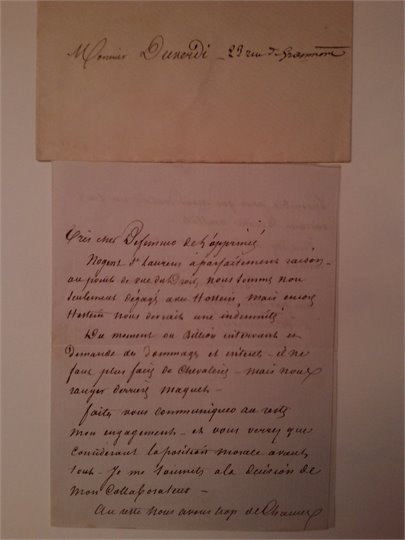 Monsieur Dunordi - 23 rue de Grammont
Très cher Defenseur de l'opprimé
Nogent St Laurens à parfaitement raison -
au point de vue du Droit, nous sommes non
seulement dégagés avec Hostein, mais encore
Hostein nous devrait une indemnité.
Du moment ou Billion intervient en
Demande de dommages et interets - il ne
faut plus faire de Chevalerie - mais nous
ranger derrière Maquet -
faites vous communiquer au reste
mon engagement - et vous verrez que
Considerant la position morale avant
tout - Je me soumets a la décision de
mon Collaborateur -
Au reste nous avons trop de Chances